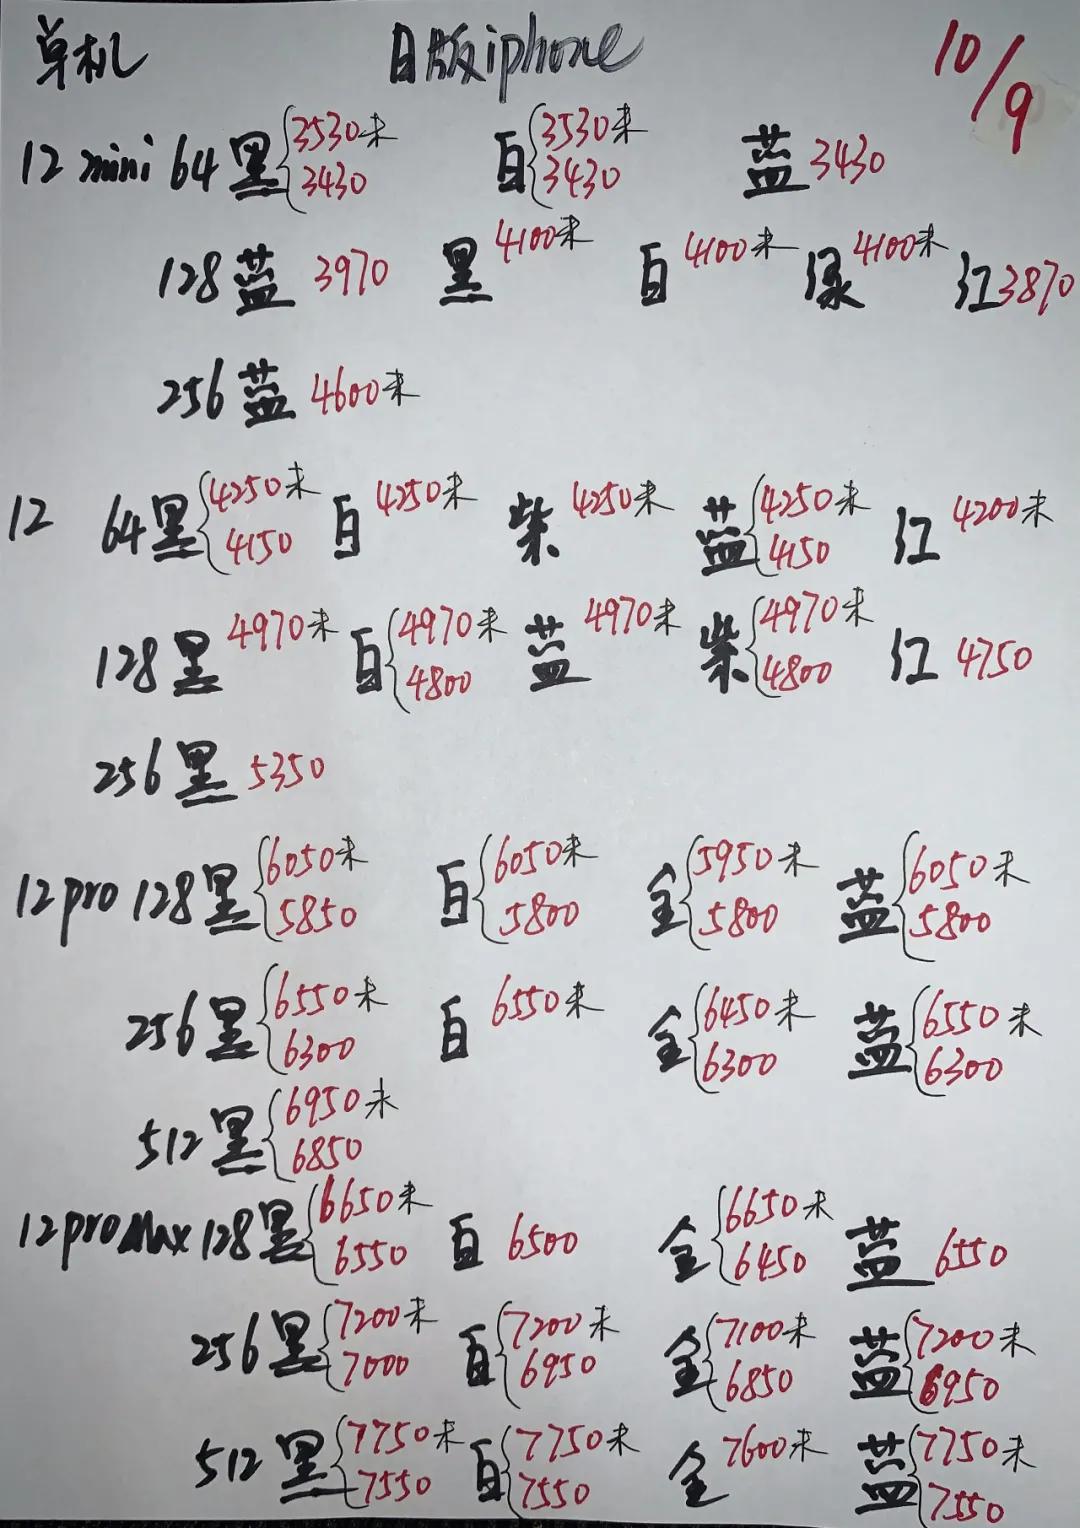 单机 日版iphone 10/9
12 mini 64 黑 3530未 3430 白 3530未 3430 蓝 3430
128 蓝 3970 黑 4100未 白 4100未 绿 4100未 红 3870
256 蓝 4600未
12 64 黑 4250未 4150 白 4250未 紫 4250未 蓝 4250未 4150 红 4200未
128 黑 4970未 白 4970未 4800 蓝 4970未 紫 4970未 4800 红 4750
256 黑 5350
12pro 128 黑 6050未 5850 白 6050未 5800 金 5950未 5800 蓝 6050未 5800
256 黑 6550未 6300 白 6550未 金 6450未 6300 蓝 6550未 6300
512 黑 6950未 6850
12proMax 128 黑 6650未 6550 白 6500 金 6650未 6450 蓝 6550
256 黑 7200未 7000 白 7200未 6950 金 7100未 6850 蓝 7200未 6950
512 黑 7750未 7550 白 7750未 7550 金 7600未 蓝 7750未 7550